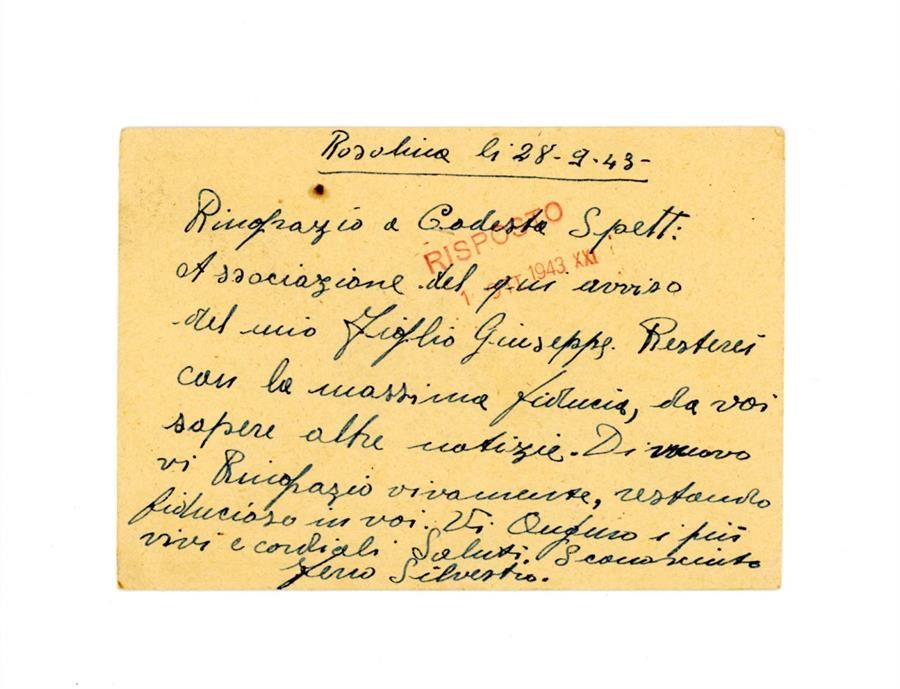 Rosolina li 28-9-43-
Ringrazio a Codesta Spett:
RISPOSTO
1943 XXI
Associazione del qui avviso
del mio Figlio Giuseppe. Resterei
con la massima fiducia, da voi
sapere altre notizie. Di nuovo
vi Ringrazio vivamente, restando
fiducioso in voi. Vi Auguro i più
vivi e cordiali Saluti. Sconosciuto
Silvestro.